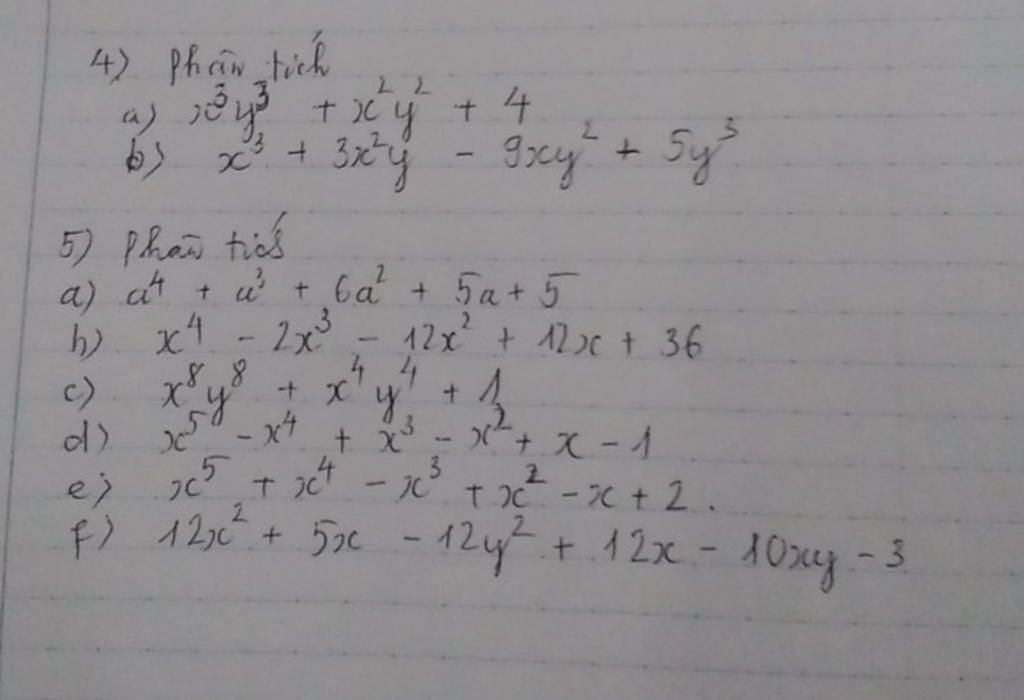 4) Phân tích
a) x³y³ + x²y² + 4
b) x³ + 3x²y - 9xy² + 5y³
5) Phân tích
a) a⁴ + a³ + 6a² + 5a + 5
b) x⁴ - 2x³ - 12x² + 12x + 36
c) x⁸y⁸ + x⁴y⁴ + 1
d) x⁵ - x⁴ + x³ - x² + x - 1
e) x⁵ + x⁴ - x³ + x² - x + 2.
f) 12x² + 5x - 12y² + 12x - 10xy - 3